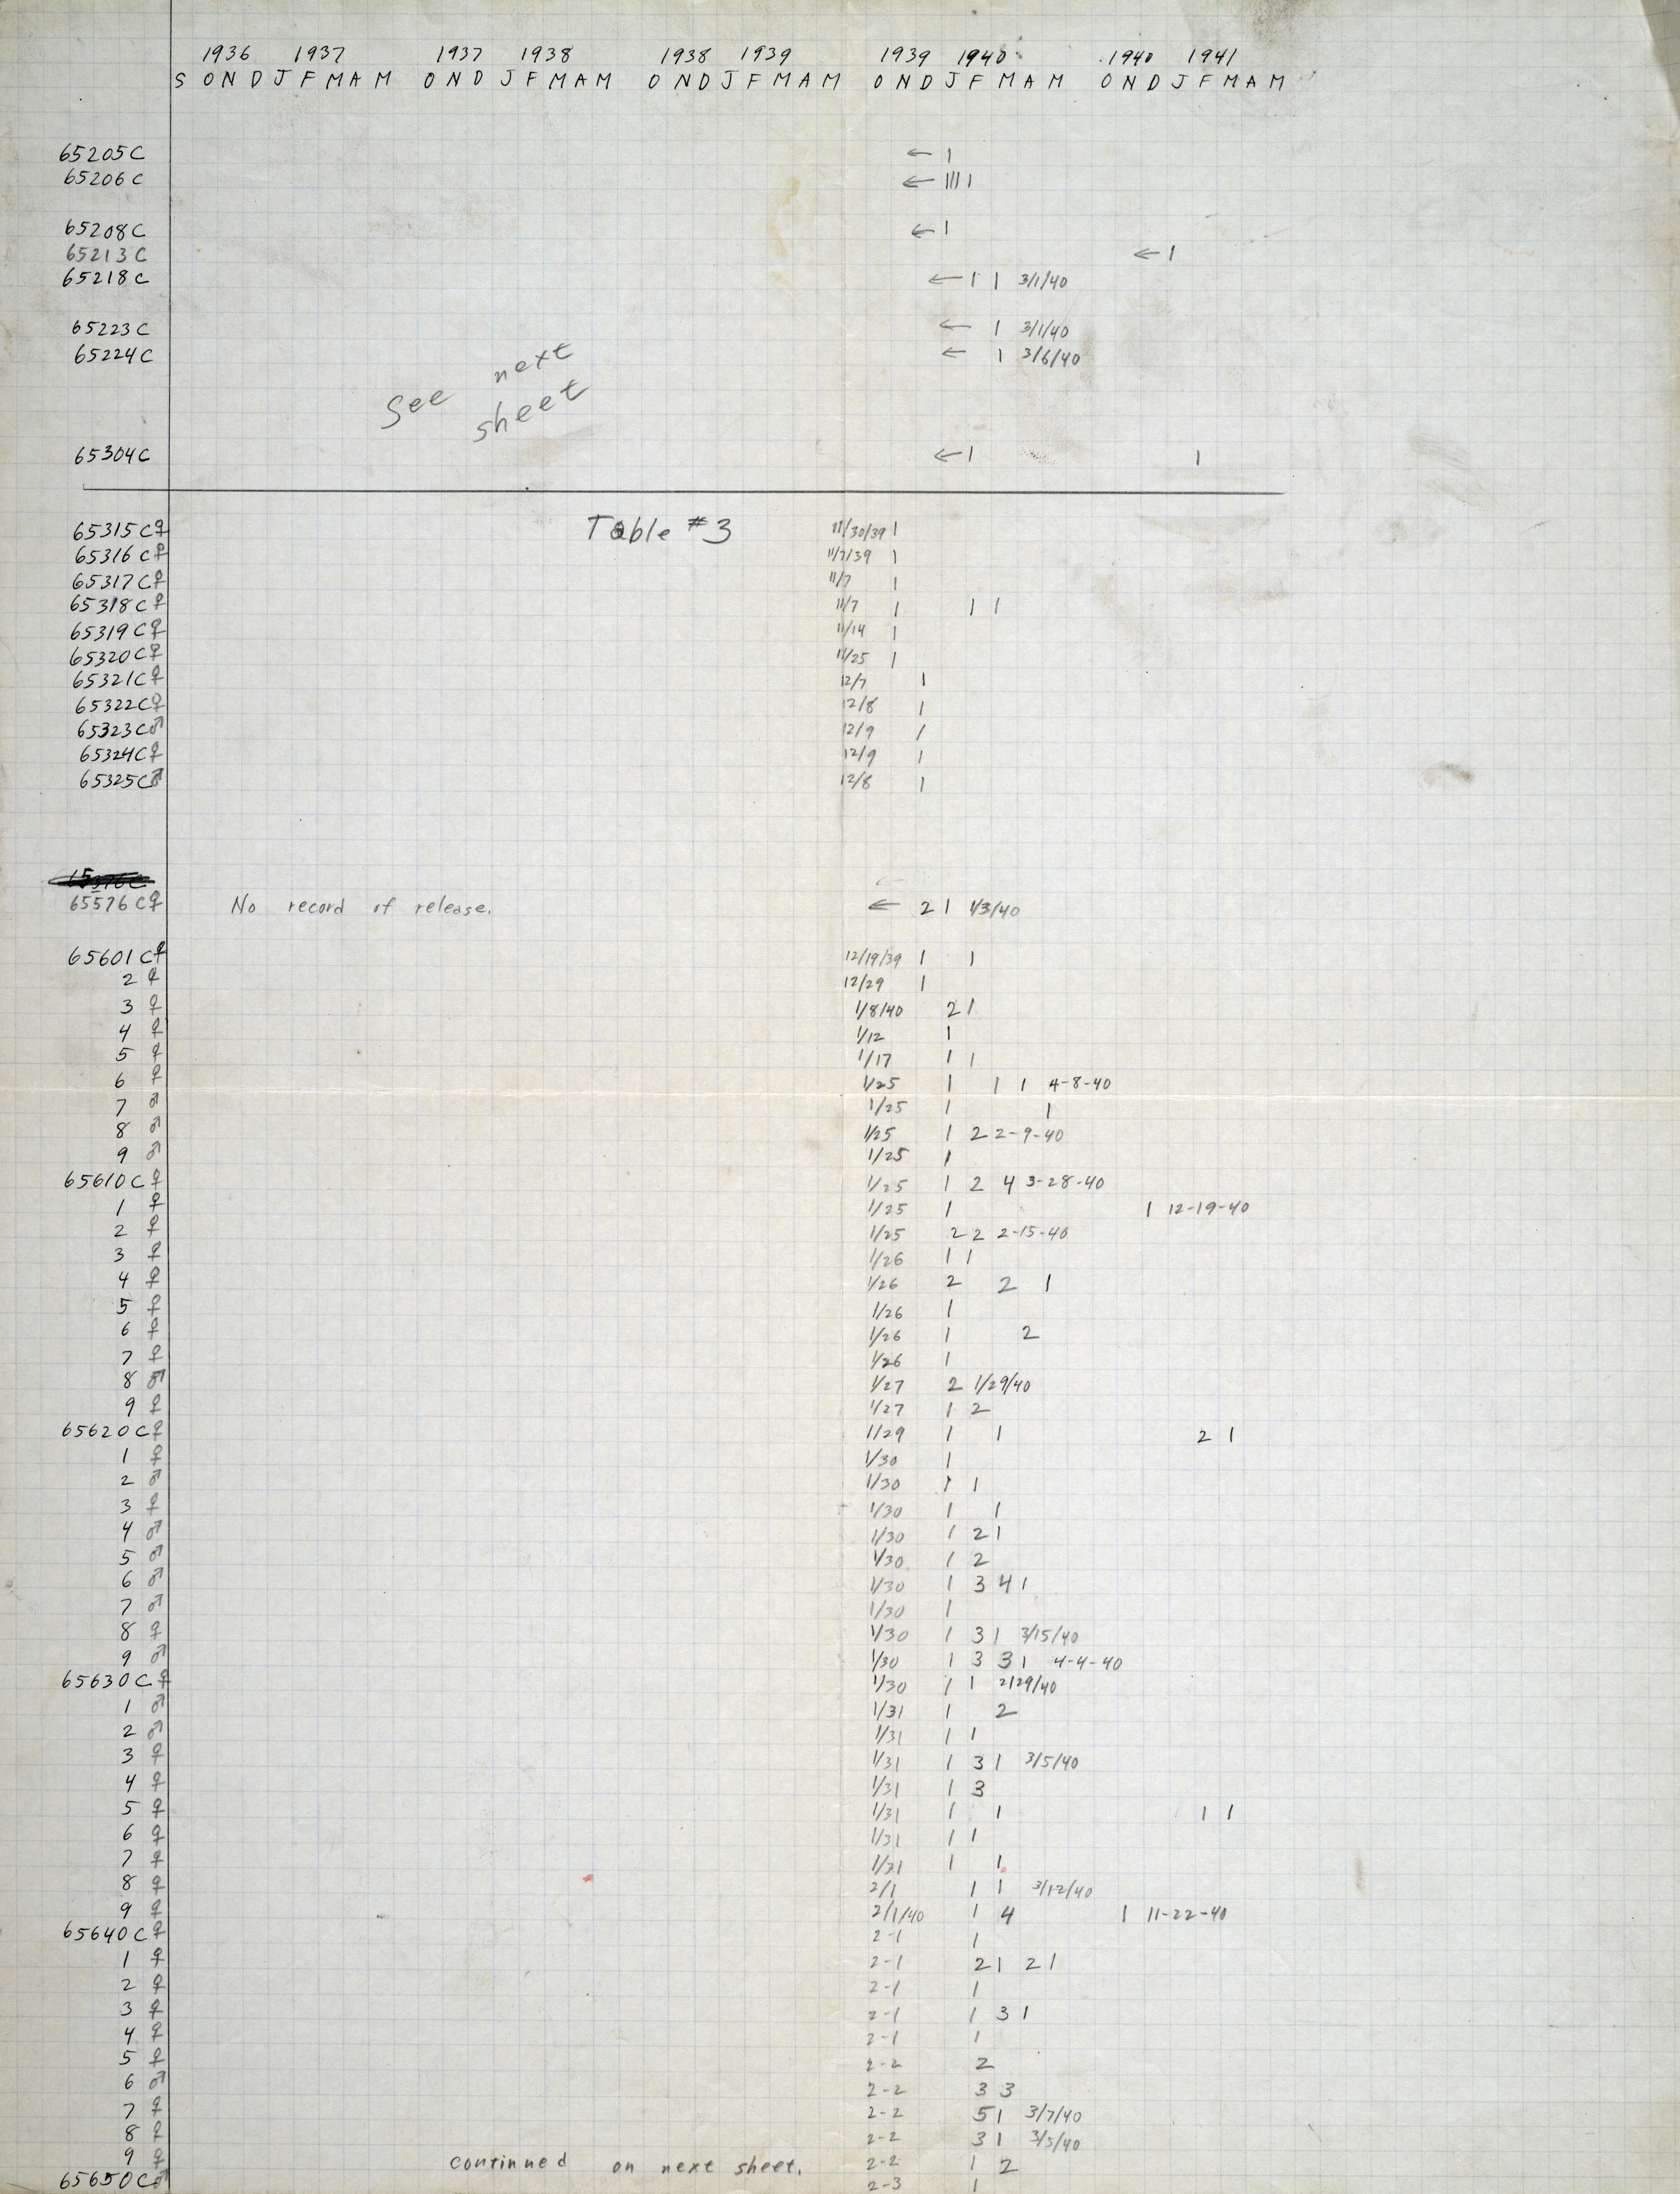 1936 1937 1937 1938 1938 1939 1939 1940 1940 1941
S O N D J F M A M O N D J F M A M O N D J F M A M O N D J F M A M O N D J F M A M
65205C ← 1
65206C ← |||| 1
65208C ← 1
65213C ← 1
65218C ← 1 1 3/1/40
65223C ← 1 3/1/40
65224C ← 1 3/6/40
See next
sheet
65304C ← 1 1
65315C♀ Table #3 11/30/39 1
65316C♀ 11/7/39 1
65317C♀ 11/7 1
65318C♀ 11/7 1 1 1
65319C♀ 11/14 1
65320C♀ 11/25 1
65321C♀ 12/7 1
65322C♀ 12/8 1
65323C♂ 12/9 1
65324C♀ 12/9 1
65325C♂ 12/8 1
65576C♀ No record of release. ← 2 1 1/3/40
65601C♀ 12/19/39 1 1
2 ♀ 12/29 1
3 ♀ 1/8/40 2 1
4 ♀ 1/12 1
5 ♀ 1/17 1 1
6 ♀ 1/25 1 1 1 4-8-40
7 ♂ 1/25 1 1
8 ♂ 1/25 1 2 2-9-40
9 ♂ 1/25 1
65610C♀ 1/25 1 2 4 3-28-40
1 ♀ 1/25 1 1 12-19-40
2 ♀ 1/25 2 2 2-15-40
3 ♀ 1/26 1 1
4 ♀ 1/26 2 2 1
5 ♀ 1/26 1
6 ♀ 1/26 1 2
7 ♀ 1/26 1
8 ♂ 1/27 2 1/29/40
9 ♀ 1/27 1 2
65620C♀ 1/29 1 1 2 1
1 ♀ 1/30 1
2 ♂ 1/30 1 1
3 ♀ 1/30 1 1
4 ♂ 1/30 1 2 1
5 ♂ 1/30 1 2
6 ♂ 1/30 1 3 4 1
7 ♂ 1/30 1
8 ♀ 1/30 1 3 1 3/15/40
9 ♂ 1/30 1 3 3 1 4-4-40
65630C♀ 1/30 1 1 2/29/40
1 ♂ 1/31 1 2
2 ♂ 1/31 1 1
3 ♀ 1/31 1 3 1 3/5/40
4 ♀ 1/31 1 3
5 ♀ 1/31 1 1 1 1
6 ♀ 1/31 1 1
7 ♀ 1/31 1 1
8 ♀ 2/1 1 1 3/12/40
9 ♀ 2/1/40 1 4 1 11-22-40
65640C♀ 2-1 1
1 ♀ 2-1 2 1 2 1
2 ♀ 2-1 1
3 ♀ 2-1 1 3 1
4 ♀ 2-1 1
5 ♀ 2-2 2
6 ♂ 2-2 3 3
7 ♀ 2-2 5 1 3/7/40
8 ♀ 2-2 3 1 3/5/40
9 ♀ continued on next sheet. 2-2 1 2
65650C♂ 2-3 1